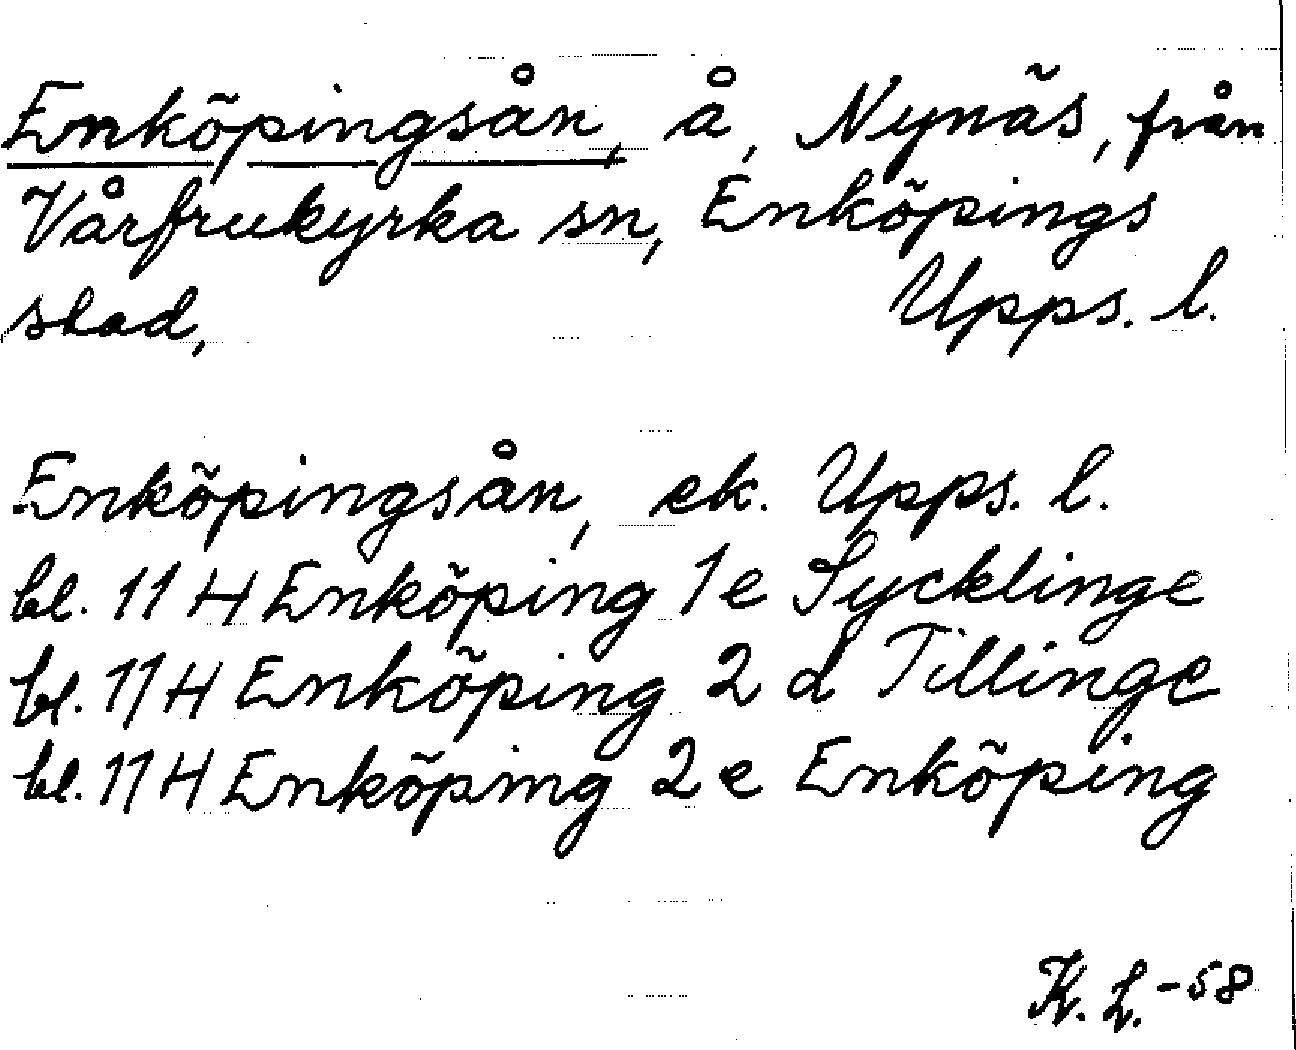 Enköpingsån, å, Nynäs, från
Vårfrukyrka sn, Enköpings
stad, Upps. l.
Enköpingsån, ek. Upps. l.
bl. 11 H Enköping 1 e Sycklinge
bl. 11 H Enköping 2 d Tillinge
bl. 11 H Enköping 2 e Enköping
K. L. -58